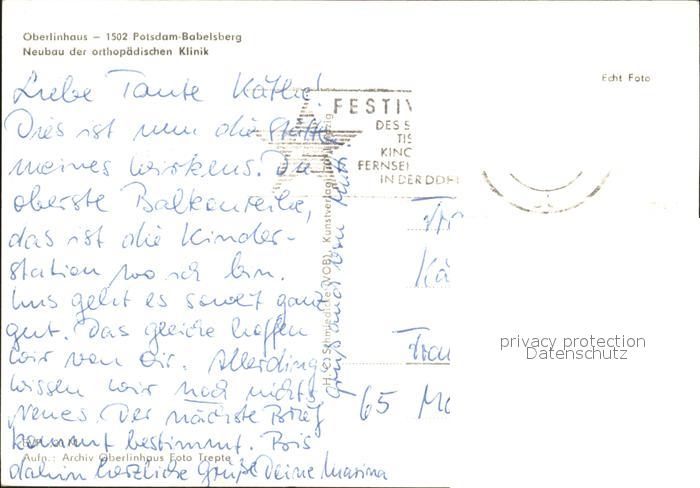 Oberlinhaus – 1502 Potsdam-Babelsberg
Neubau der orthopädischen Klinik
Echt Foto
Liebe Tante Käthe!
Dies ist nun die Stätte
meines Wirkens. Die
oberste Balkonreihe,
das ist die Kinder-
station wo ich bin.
Uns geht es soweit ganz
gut. Das gleiche hoffen
wir von dir. Allerdings
wissen wir noch nichts
Neues. Der nächste Brief
kommt bestimmt. Bis
dahin herzliche Grüße Deine Marina
Aufn.: Archiv Oberlinhaus Foto Trepte
FESTIV
DES S
TIS
KINO
FERNSE
IN DER DDR
Kä
65 Ma
privacy protection
Datenschutz